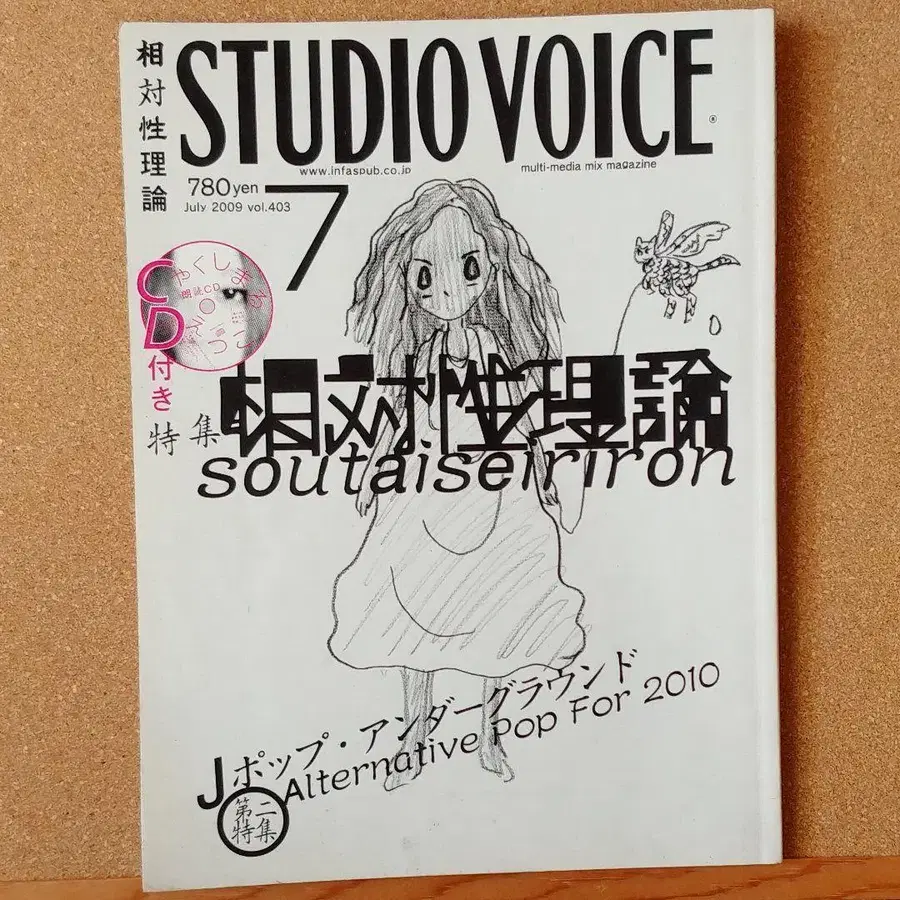 相対性理論
STUDIO VOICE®
www.infaspub.co.jp
multi-media mix magazine
780yen
July 2009 vol.403
7
CD付き
やくしまるえつこ
朗読CD
特集
相対性理論
soutaiseiriron
Jポップ・アンダーグラウンド
Alternative Pop For 2010
第二
特集